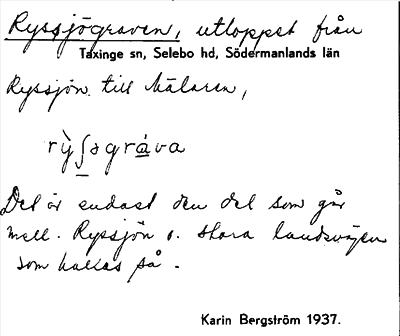 Ryssjögraven, utloppet från
Taxinge sn, Selebo hd, Södermanlands län
Ryssjön till Mälaren,
rỳʃəgráva
Det är endast den del som går
mell. Ryssjön o. stora landsvägen
som kallas så.
Karin Bergström 1937.